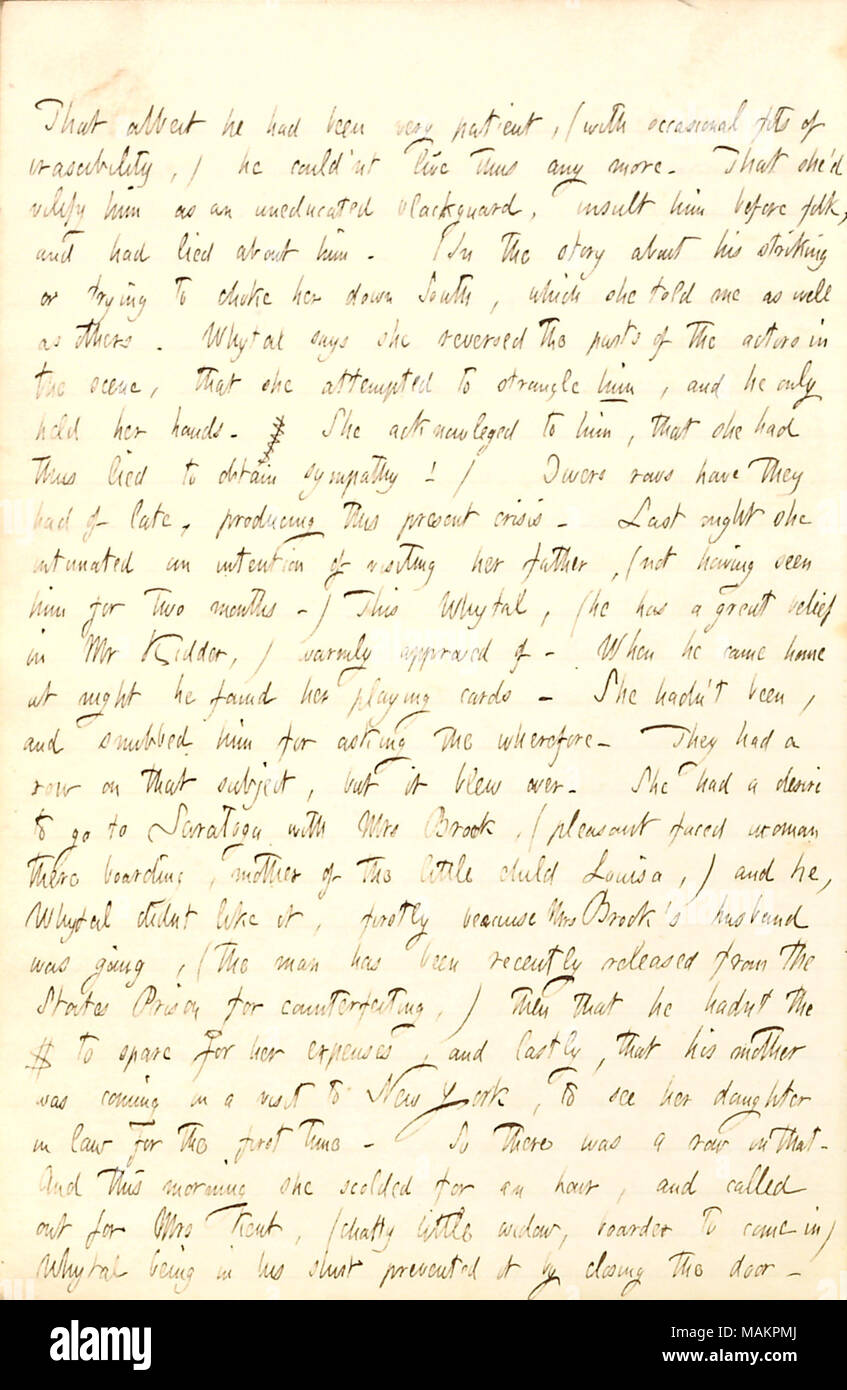 That albeit he had been very patient, (with occasional fits of
irascibility,) he could'nt live thus any more. That she'd
vilify him as an uneducated blackguard, insult him before folk,
and had lied about him. (In the story about his striking
or trying to choke her down South, which she told me as well
as others. Whytal says she reversed the parts of the actors in
the scene, that she attempted to strangle him, and he only
held her hands. She acknowleged to him, that she had
thus lied to obtain sympathy!) Divers rows have they
had of late, producing this present crisis. Last night she
intimated an intention of visiting her father, (not having seen
him for two months.) This Whytal, (he has a great belief
in Mr Kidder,) warmly approved of. When he came home
at night he found her playing cards. She hadn't been,
and snubbed him for asking the wherefore. They had a
row on that subject, but it blew over. She had a desire
to go to Saratoga with Mrs Brook, (pleasant faced woman
there boarding, mother of the little child Louisa,) and he,
Whytal didnt like it, firstly because Mrs Brook's husband
was going, (the man has been recently released from the
States Prison for counterfeiting,) then that he hadnt the
$ to spare for her expenses, and lastly, that his mother
was coming on a visit to New York, to see her daughter
in law for the first time. So there was a row on that.
And this morning she scolded for an hour, and called
out for Mrs Kent, (chatty little widow, boarder to come in)
Whytal being in his shirt prevented it by closing the door.
alamy
Image ID: MAKPMJ
www.alamy.com